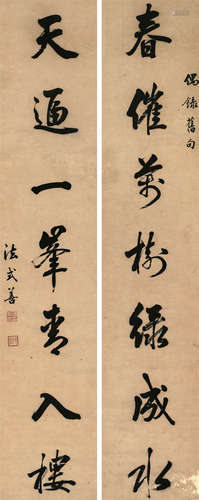 偶録舊句
春催萬樹綠成水
天逼一峯青入樓
法式善